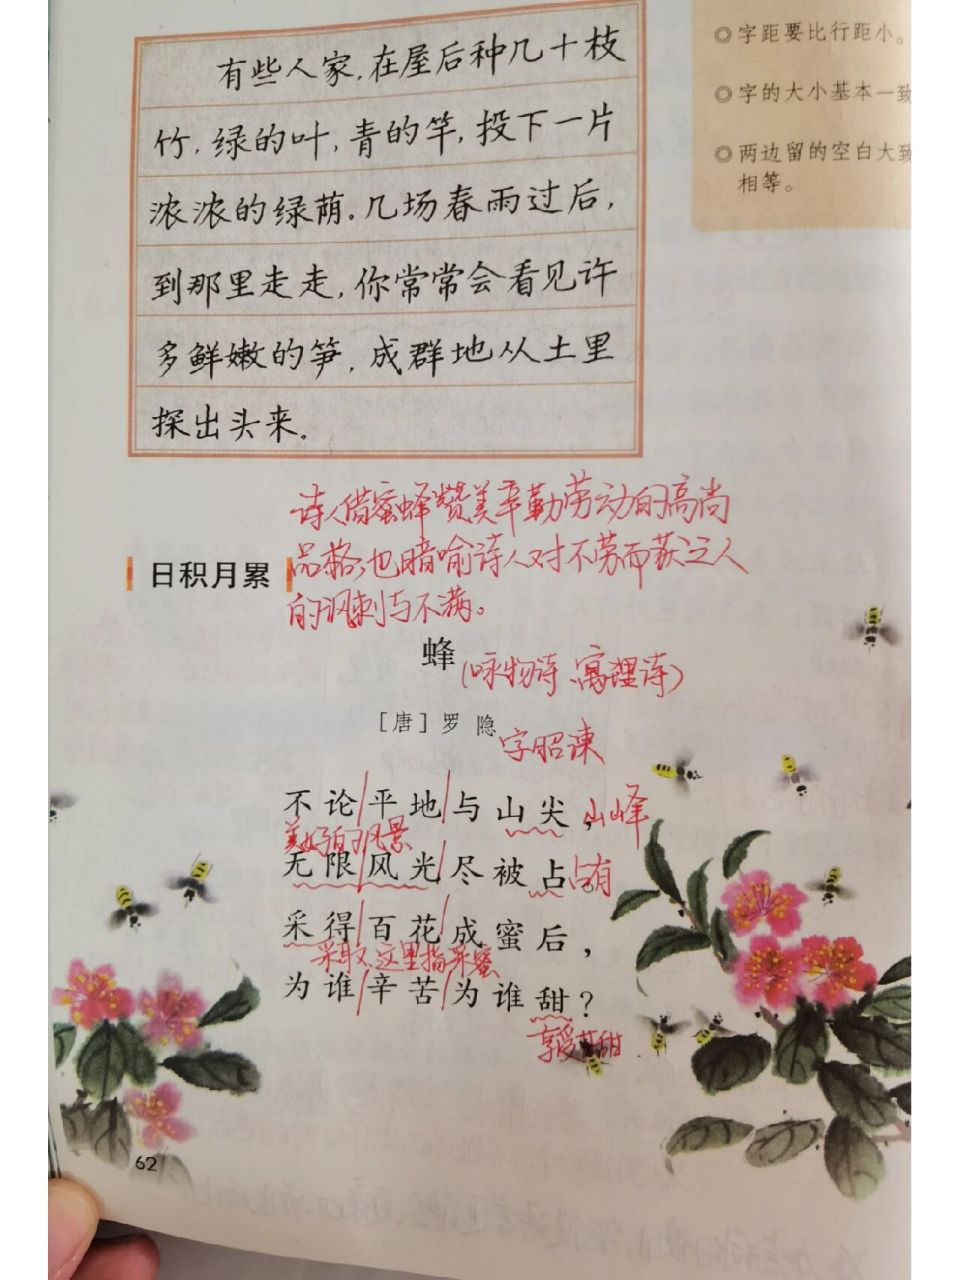 有些人家，在屋后种几十枝
竹，绿的叶，青的竿，投下一片
浓浓的绿荫。几场春雨过后，
到那里走走，你常常会看见许
多鲜嫩的笋，成群地从土里
探出头来。
◎字距要比行距小。
◎字的大小基本一致
◎两边留的空白大致
相等。
诗人借蜜蜂赞美辛勤劳动的高尚
品格，也暗喻诗人对不劳而获之人
的讽刺与不满。
日积月累
蜂
(咏物诗、寓理诗)
［唐］罗隐
字昭谏
不论/平地/与山尖，
山峰
美好的风景
无限/风光/尽被占。
占有
采得/百花/成蜜后，
采取，这里指采蜜
为谁/辛苦/为谁甜？
享受甘甜
62